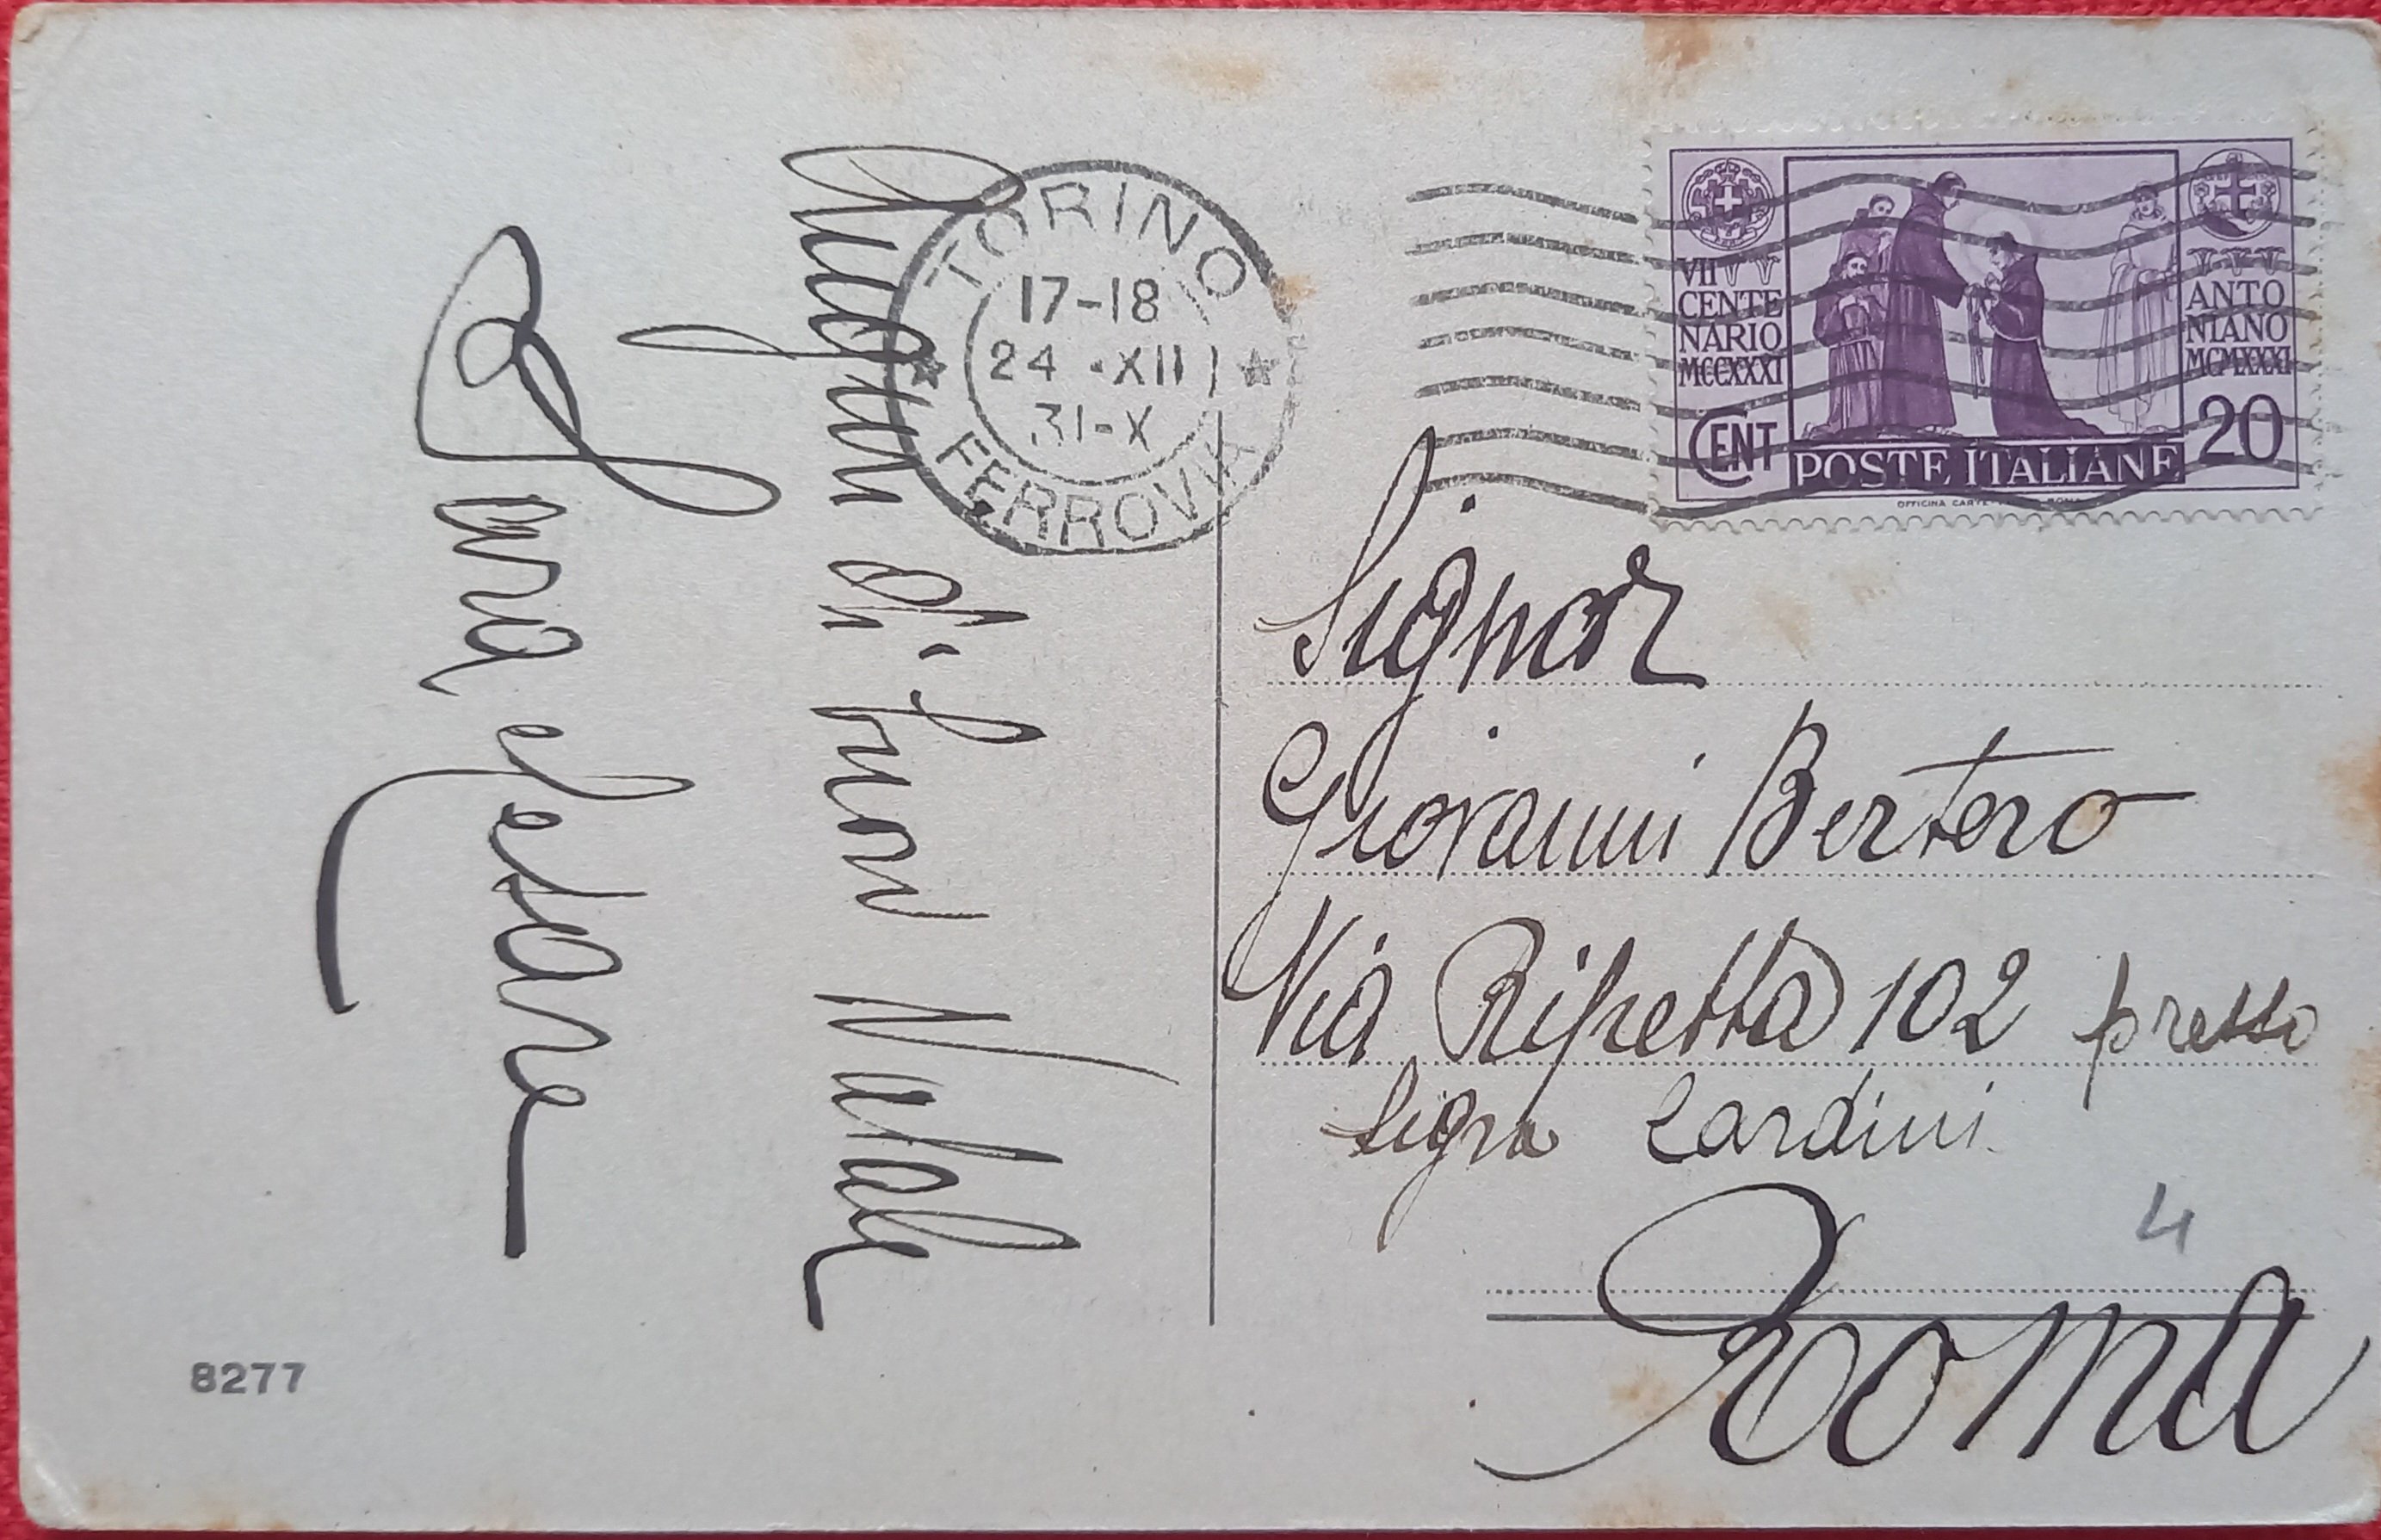 Auguri di buon Natale
Sara e Cesare
TORINO
17-18
24 -XII
31-X
FERROVIA
VII
CENTE
NARIO
MCCXXXI
ANTO
NIANO
MCMXXXI
CENT
POSTE ITALIANE
20
Signor
Giovanni Bertero
Via Ripetta 102 presso
Sigra Cardini
4
Roma
8277